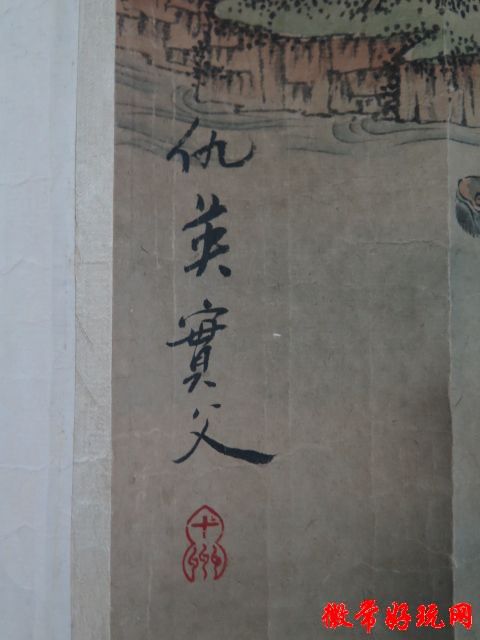 仇英實父
十洲
徽常好玩网